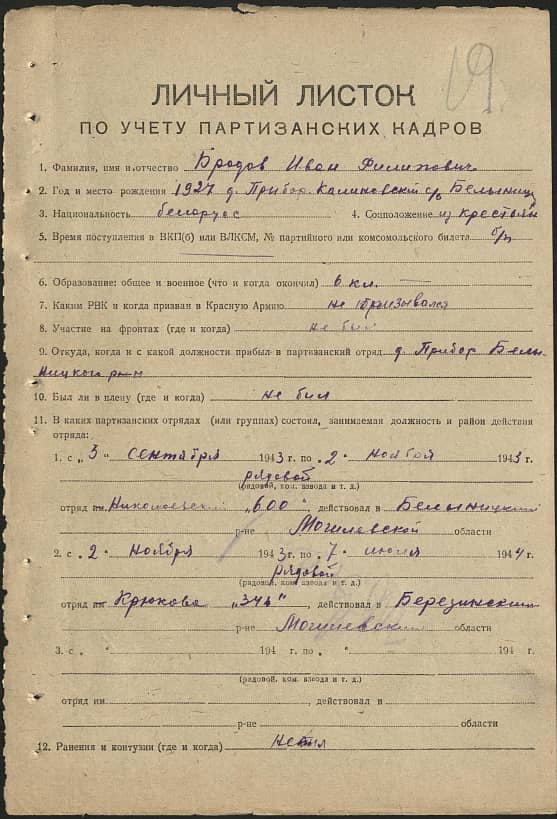 19
ЛИЧНЫЙ ЛИСТОК
ПО УЧЕТУ ПАРТИЗАНСКИХ КАДРОВ
1. Фамилия, имя и отчество Бродов Иван Филипович
2. Год и место рождения 1927 д. Прибор Калиновский с/с Белынич
3. Национальность белорус 4. Соцположение из крестьян
5. Время поступления в ВКП(б) или ВЛКСМ, № партийного или комсомольского билета б/п
6. Образование: общее и военное (что и когда окончил) 6 кл.
7. Каким РВК и когда призван в Красную Армию не призывался
8. Участие на фронтах (где и когда) не был
9. Откуда, когда и с какой должности прибыл в партизанский отряд д. Прибор Белы-
ницкого р-н
10. Был ли в плену (где и когда) не был
11. В каких партизанских отрядах (или группах) состоял, занимаемая должность и район действия
отряда:
1. с „3" сентября 1943 г. по „2" ноября 1943 г.
рядовой
(рядовой, ком. взвода и т. д.)
отряд им. „600", действовал в Белыницкий
р-не Могилевской области
2. с „2" ноября 1943 г. по „7" июля 1944 г.
рядовой
(рядовой, ком. взвода и т. д.)
отряд им. Крюкова „346", действовал в Березинский
р-не Могилевский области
3. с „ " 194 г. по „ " 194 г.
(рядовой, ком. взвода и т. д.)
отряд им , действовал в
р-не области
12. Ранения и контузии (где и когда)